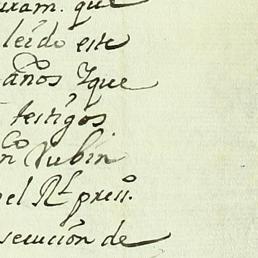 uram. que
leído este
años Yque
testigos
Co
n Rubin
el Rl. press.
secución de